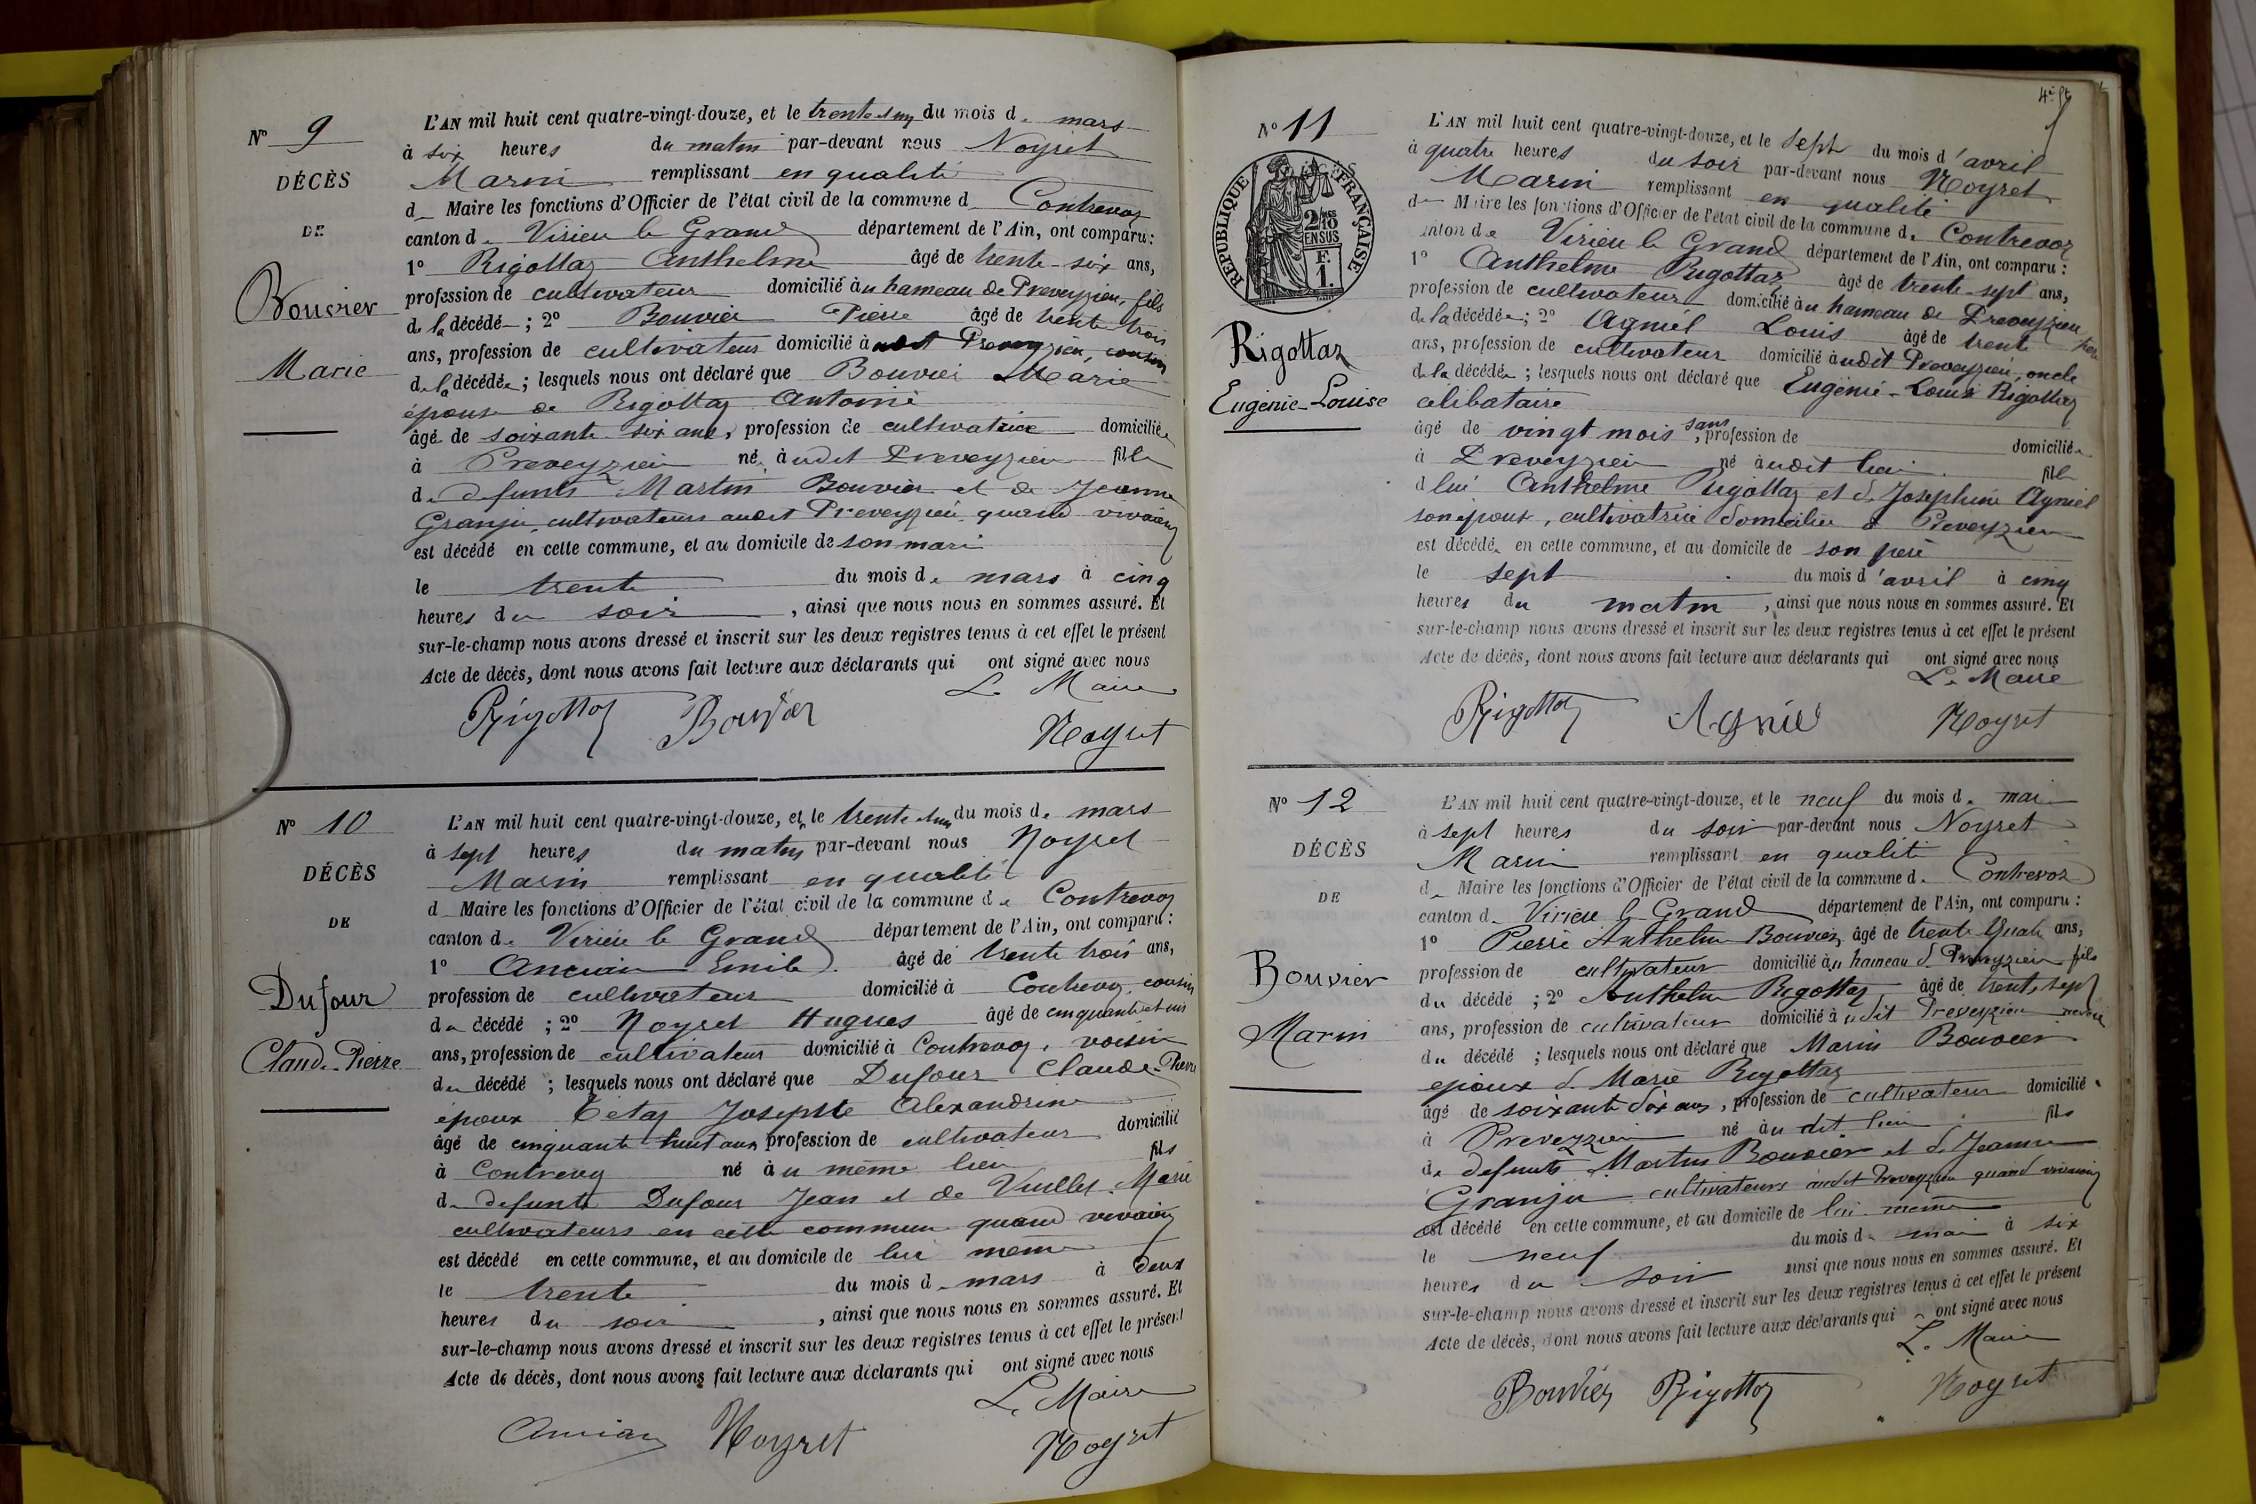 N° 9
DÉCÈS
DE
Bouvier
Marie
L'AN mil huit cent quatre-vingt-douze, et le trente et un du mois de mars
à six heures du matin par-devant nous Noyret
Marin remplissant en qualité
d Maire les fonctions d'Officier de l'état civil de la commune d Contrevoz
canton de Virieu le Grand département de l'Ain, ont comparu :
1° Rigottaz Anthelme âgé de trente-six ans,
profession de cultivateur domicilié au hameau de Preveyzieu, fils
de la décédé ; 2° Bouvier Pierre âgé de trente trois
ans, profession de cultivateur domicilié à udit Preveyzieu, cousin
de la décédée ; lesquels nous ont déclaré que Bouvier Marie
épouse de Rigottaz Antoine
âgé de soixante-six ans, profession de cultivatrice domiciliée
à Preveyzieu née à udit Preveyzieu fille
de defunts Martin Bouvier et de Jeanne
Granju, cultivateurs audit Preveyzieu quand vivaient
est décédé en cette commune, et au domicile de son mari
le trente du mois de mars à cinq
heures du soir, ainsi que nous nous en sommes assuré. Et
sur-le-champ nous avons dressé et inscrit sur les deux registres tenus à cet effet le présent
Acte de décès, dont nous avons fait lecture aux déclarants qui ont signé avec nous
Le Maire
Rigottaz Bouvier Noyret
N° 10
DÉCÈS
DE
Dufour
Claude-Pierre
L'AN mil huit cent quatre-vingt-douze, et le trente et un du mois de mars
à sept heures du matin par-devant nous Noyret
Marin remplissant en qualité
d Maire les fonctions d'Officier de l'état civil de la commune de Contrevoz
canton de Virieu le Grand département de l'Ain, ont comparu :
1° Ancian Emile âgé de trente trois ans,
profession de cultivateur domicilié à Contrevoz, cousin
du décédé ; 2° Noyret Hugues âgé de cinquante et un
ans, profession de cultivateur domicilié à Contrevoz, voisin
du décédé ; lesquels nous ont déclaré que Dufour Claude-Pierre
époux Tétaz Josephte Alexandrine
âgé de cinquante huit ans, profession de cultivateur domicilié
à Contrevoz né à u même lieu fils
de defunts Dufour Jean et de Vuillet Marie
cultivateurs en cette commune quand vivaient
est décédé en cette commune, et au domicile de lui même
le trente du mois de mars à deux
heures du soir, ainsi que nous nous en sommes assuré. Et
sur-le-champ nous avons dressé et inscrit sur les deux registres tenus à cet effet le présent
Acte de décès, dont nous avons fait lecture aux déclarants qui ont signé avec nous
Le Maire
Ancian Noyret Noyret
4e ft
N° 11
RÉPUBLIQUE FRANÇAISE
2/10 EN SUS
F. 1.
Rigottaz
Eugénie-Louise
L'AN mil huit cent quatre-vingt-douze, et le sept du mois d'avril
à quatre heures du soir par-devant nous Noyret
Marin remplissant en qualité
de Maire les fonctions d'Officier de l'état civil de la commune de Contrevoz
canton de Virieu le Grand département de l'Ain, ont comparu :
1° Anthelme Rigottaz âgé de trente-sept ans,
profession de cultivateur domicilié au hameau de Preveyzieu père
de la décédée ; 2° Agniel Louis âgé de trente
ans, profession de cultivateur domicilié à udit Preveyzieu, oncle
de la décédée ; lesquels nous ont déclaré que Eugénie-Louise Rigottaz
célibataire
âgé de vingt mois, sans profession de domiciliée
à Preveyzieu né à udit lieu fille
d lui Anthelme Rigottaz et de Joséphine Agniel
son épouse, cultivatrice domiciliée à Preveyzieu
est décédée en cette commune, et au domicile de son père
le sept du mois d'avril à cinq
heures du matin, ainsi que nous nous en sommes assuré. Et
sur-le-champ nous avons dressé et inscrit sur les deux registres tenus à cet effet le présent
Acte de décès, dont nous avons fait lecture aux déclarants qui ont signé avec nous
Le Maire
Rigottaz Agniel Noyret
N° 12
DÉCÈS
DE
Bouvier
Marin
L'AN mil huit cent quatre-vingt-douze, et le neuf du mois de mai
à sept heures du soir par-devant nous Noyret
Marin remplissant en qualité
de Maire les fonctions d'Officier de l'état civil de la commune de Contrevoz
canton de Virieu le Grand département de l'Ain, ont comparu :
1° Pierre Anthelme Bouvier, âgé de trente quatre ans,
profession de cultivateur domicilié au hameau de Preveyzieu fils
du décédé ; 2° Anthelme Rigottaz âgé de trente sept
ans, profession de cultivateur domicilié à udit Preveyzieu neveu
du décédé ; lesquels nous ont déclaré que Marin Bouvier
époux de Marie Rigottaz
âgé de soixante dix ans, profession de cultivateur domicilié
à Preveyzieu né à u dit lieu fils
de defunts Martin Bouvier et de Jeanne
Granju cultivateurs audit Preveyzieu quand vivaient
est décédé en cette commune, et au domicile de lui même
le neuf du mois de mai à six
heures du soir ainsi que nous nous en sommes assuré. Et
sur-le-champ nous avons dressé et inscrit sur les deux registres tenus à cet effet le présent
Acte de décès, dont nous avons fait lecture aux déclarants qui ont signé avec nous
Le Maire
Bouvier Rigottaz Noyret